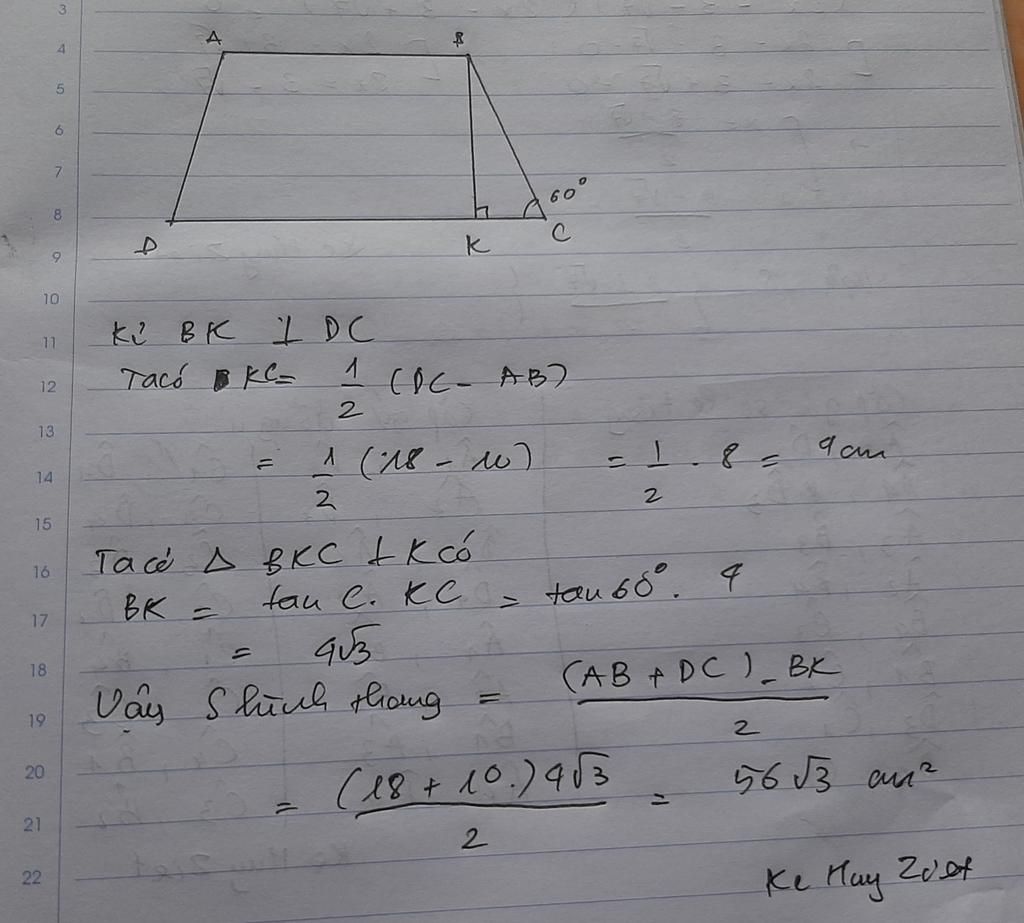 3
4
5
6
7
8
9
10
11
12
13
14
15
16
17
18
19
20
21
22
A B
60°
D K C
Kẻ BK ⊥ DC
Ta có KC = 1/2 (DC - AB)
= 1/2 (18 - 10) = 1/2 . 8 = 4 cm
Ta có Δ BKC ⊥ K có
BK = tan C. KC = tan 60°. 4
= 4√3
Vậy S hình thang = (AB + DC) . BK / 2
= (18 + 10.) 4√3 / 2 = 56 √3 cm²